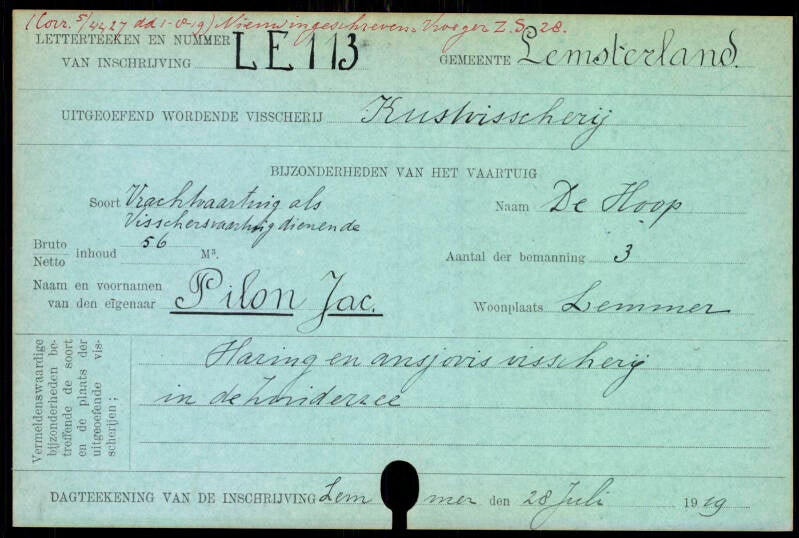 (Corr. 5/4427 dd 1-8-19) Nieuw ingeschreven. Vroeger Z.S. 28.
LETTERTEEKEN EN NUMMER
VAN INSCHRIJVING LE 113 GEMEENTE Lemsterland.
UITGEOEFEND WORDENDE VISSCHERIJ Kustvisscherij
BIJZONDERHEDEN VAN HET VAARTUIG
Soort Vrachtvaartuig als Naam De Hoop
Visschersvaartuig dienende
Bruto
Netto inhoud 56 M³. Aantal der bemanning 3
Naam en voornamen
van den eigenaar Pilon Jac. Woonplaats Lemmer
Vermeldenswaardige
bijzonderheden be-
treffende de soort
en de plaats der
uitgeoefende vis-
scherijen;
Haring en ansjovis visscherij
in de Zuiderzee
DAGTEEKENING VAN DE INSCHRIJVING Lemmer den 28 Juli 1919